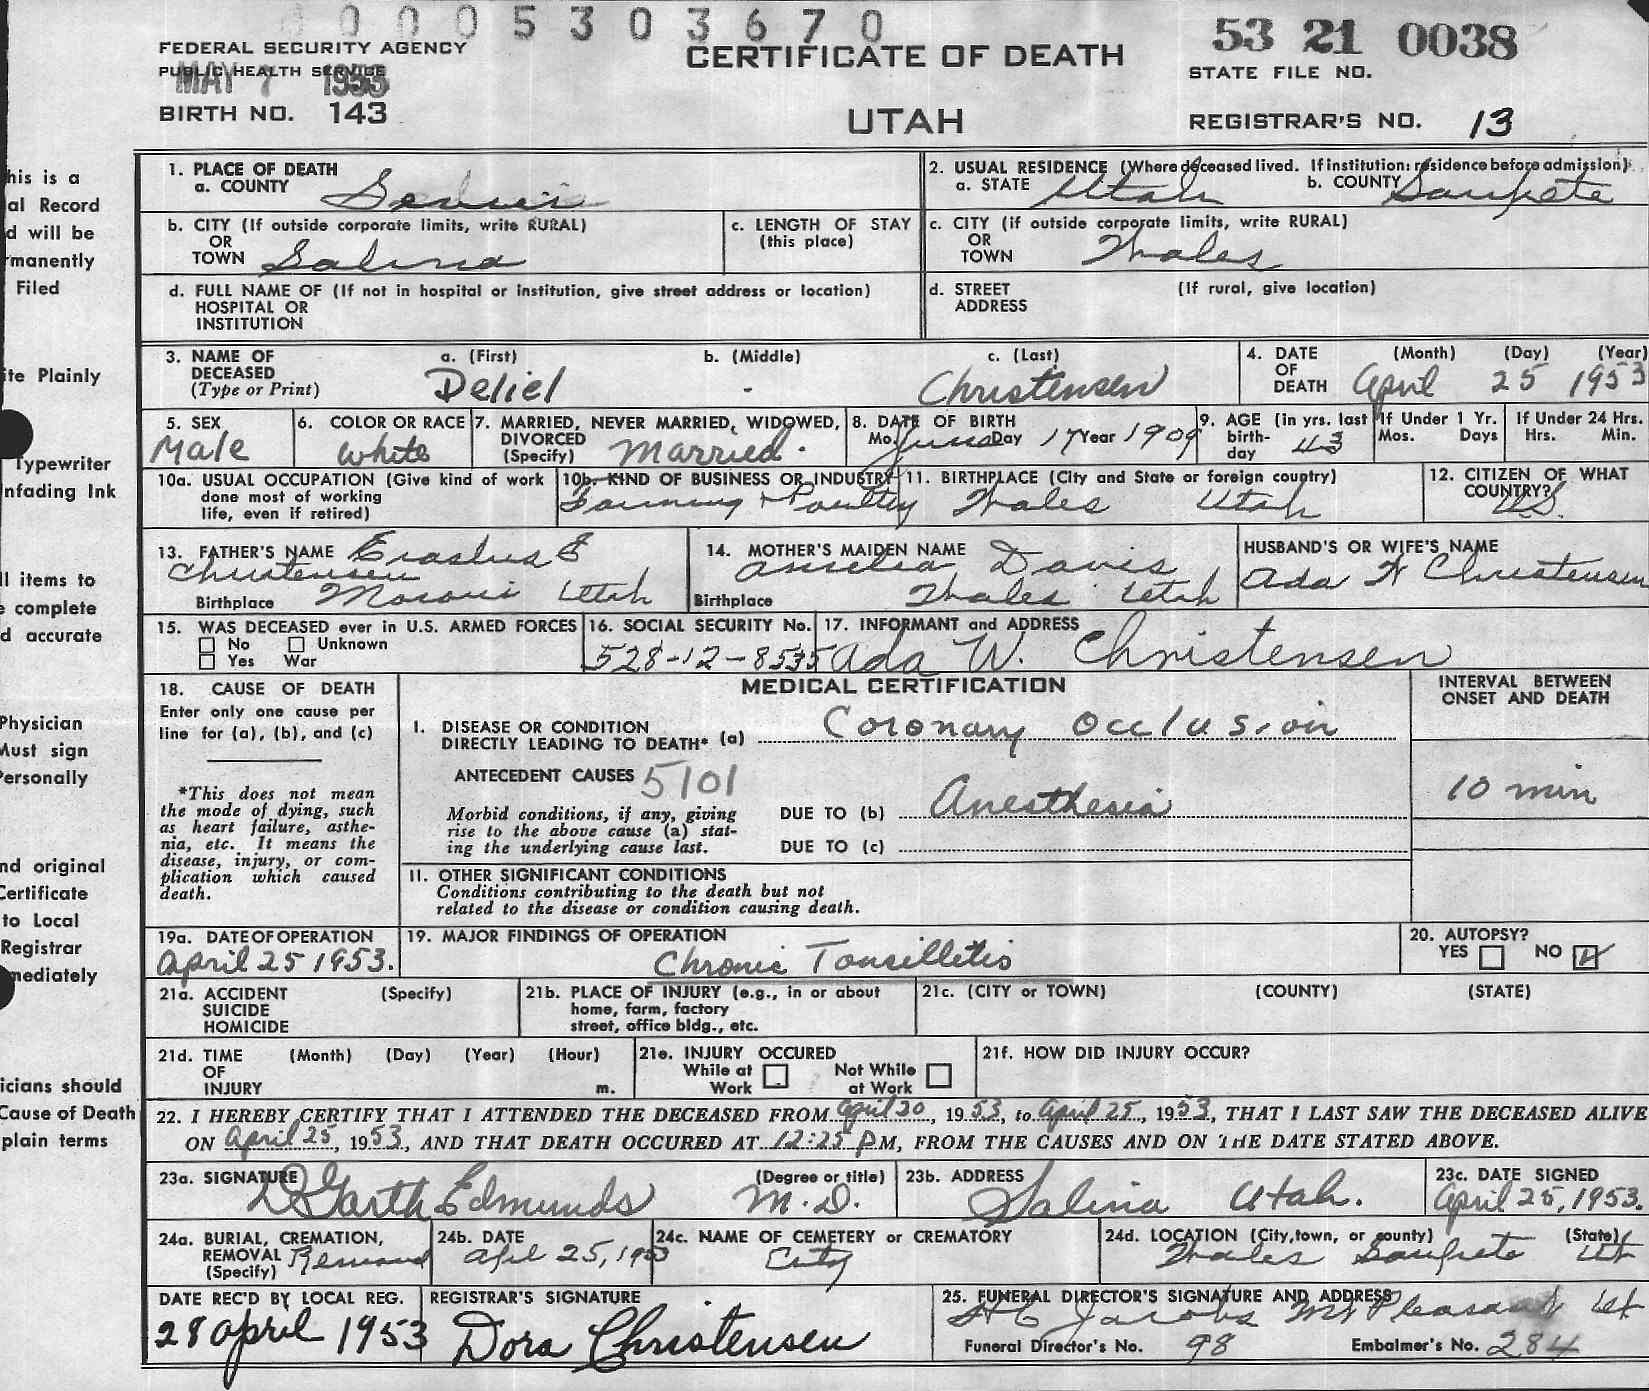 0 0 0 0 5 3 0 3 6 7 0
FEDERAL SECURITY AGENCY
PUBLIC HEALTH SERVICE
MAY 7 1953
BIRTH NO. 143
CERTIFICATE OF DEATH
UTAH
53 21 0038
STATE FILE NO.
REGISTRAR'S NO. 13
his is a
al Record
d will be
rmanently
Filed
ite Plainly
Typewriter
nfading Ink
ll items to
e complete
d accurate
Physician
Must sign
Personally
nd original
Certificate
to Local
Registrar
mediately
icians should
Cause of Death
plain terms
1. PLACE OF DEATH
a. COUNTY Sevier
2. USUAL RESIDENCE (Where deceased lived. If institution: residence before admission)
a. STATE Utah b. COUNTY Sanpete
b. CITY (If outside corporate limits, write RURAL)
OR
TOWN Salina
c. LENGTH OF STAY
(this place)
c. CITY (if outside corporate limits, write RURAL)
OR
TOWN Wales
d. FULL NAME OF (If not in hospital or institution, give street address or location)
HOSPITAL OR
INSTITUTION
d. STREET (If rural, give location)
ADDRESS
3. NAME OF DECEASED (Type or Print)
a. (First) b. (Middle) c. (Last)
Deliel - Christensen
4. DATE OF DEATH (Month) (Day) (Year)
April 25 1953
5. SEX
Male
6. COLOR OR RACE
White
7. MARRIED, NEVER MARRIED, WIDOWED,
DIVORCED
(Specify) Married.
8. DATE OF BIRTH
Mo. June Day 17 Year 1909
9. AGE (in yrs. last
birth-
day 43
If Under 1 Yr.
Mos. Days
If Under 24 Hrs.
Hrs. Min.
10a. USUAL OCCUPATION (Give kind of work
done most of working
life, even if retired)
10b. KIND OF BUSINESS OR INDUSTRY
Farming & Poultry
11. BIRTHPLACE (City and State or foreign country)
Wales Utah
12. CITIZEN OF WHAT
COUNTRY?
U.S.
13. FATHER'S NAME Erastus E
Christensen
Birthplace Moroni Utah
14. MOTHER'S MAIDEN NAME
Amelia Davis
Birthplace Wales Utah
HUSBAND'S OR WIFE'S NAME
Ada W Christensen
15. WAS DECEASED ever in U.S. ARMED FORCES
No Unknown
Yes War
16. SOCIAL SECURITY No.
528-12-8535
17. INFORMANT and ADDRESS
Ada W. Christensen
18. CAUSE OF DEATH
Enter only one cause per
line for (a), (b), and (c)
*This does not mean
the mode of dying, such
as heart failure, asthe-
nia, etc. It means the
disease, injury, or com-
plication which caused
death.
MEDICAL CERTIFICATION
I. DISEASE OR CONDITION
DIRECTLY LEADING TO DEATH* (a) Coronary Occlusion
ANTECEDENT CAUSES 5101
Morbid conditions, if any, giving
rise to the above cause (a) stat-
ing the underlying cause last.
DUE TO (b) Anesthesia
DUE TO (c)
II. OTHER SIGNIFICANT CONDITIONS
Conditions contributing to the death but not
related to the disease or condition causing death.
INTERVAL BETWEEN
ONSET AND DEATH
10 min
19a. DATE OF OPERATION
April 25 1953.
19. MAJOR FINDINGS OF OPERATION
Chronic Tonsilletis
20. AUTOPSY?
YES NO
21a. ACCIDENT (Specify)
SUICIDE
HOMICIDE
21b. PLACE OF INJURY (e.g., in or about
home, farm, factory
street, office bldg., etc.
21c. (CITY or TOWN) (COUNTY) (STATE)
21d. TIME (Month) (Day) (Year) (Hour)
OF
INJURY m.
21e. INJURY OCCURED
While at Not While
Work at Work
21f. HOW DID INJURY OCCUR?
22. I HEREBY CERTIFY THAT I ATTENDED THE DECEASED FROM April 20, 1953, to April 25, 1953, THAT I LAST SAW THE DECEASED ALIVE
ON April 25, 1953, AND THAT DEATH OCCURED AT 12:25 PM, FROM THE CAUSES AND ON THE DATE STATED ABOVE.
23a. SIGNATURE (Degree or title)
Garth Edmunds M.D.
23b. ADDRESS
Salina Utah.
23c. DATE SIGNED
April 25, 1953.
24a. BURIAL, CREMATION,
REMOVAL Removal
(Specify)
24b. DATE
April 25, 1953
24c. NAME OF CEMETERY or CREMATORY
City
24d. LOCATION (City, town, or county) (State)
Wales Sanpete Ut
DATE REC'D BY LOCAL REG.
28 April 1953
REGISTRAR'S SIGNATURE
Dora Christensen
25. FUNERAL DIRECTOR'S SIGNATURE AND ADDRESS
Jacobs Mt Pleasant Ut
Funeral Director's No. 98 Embalmer's No. 284